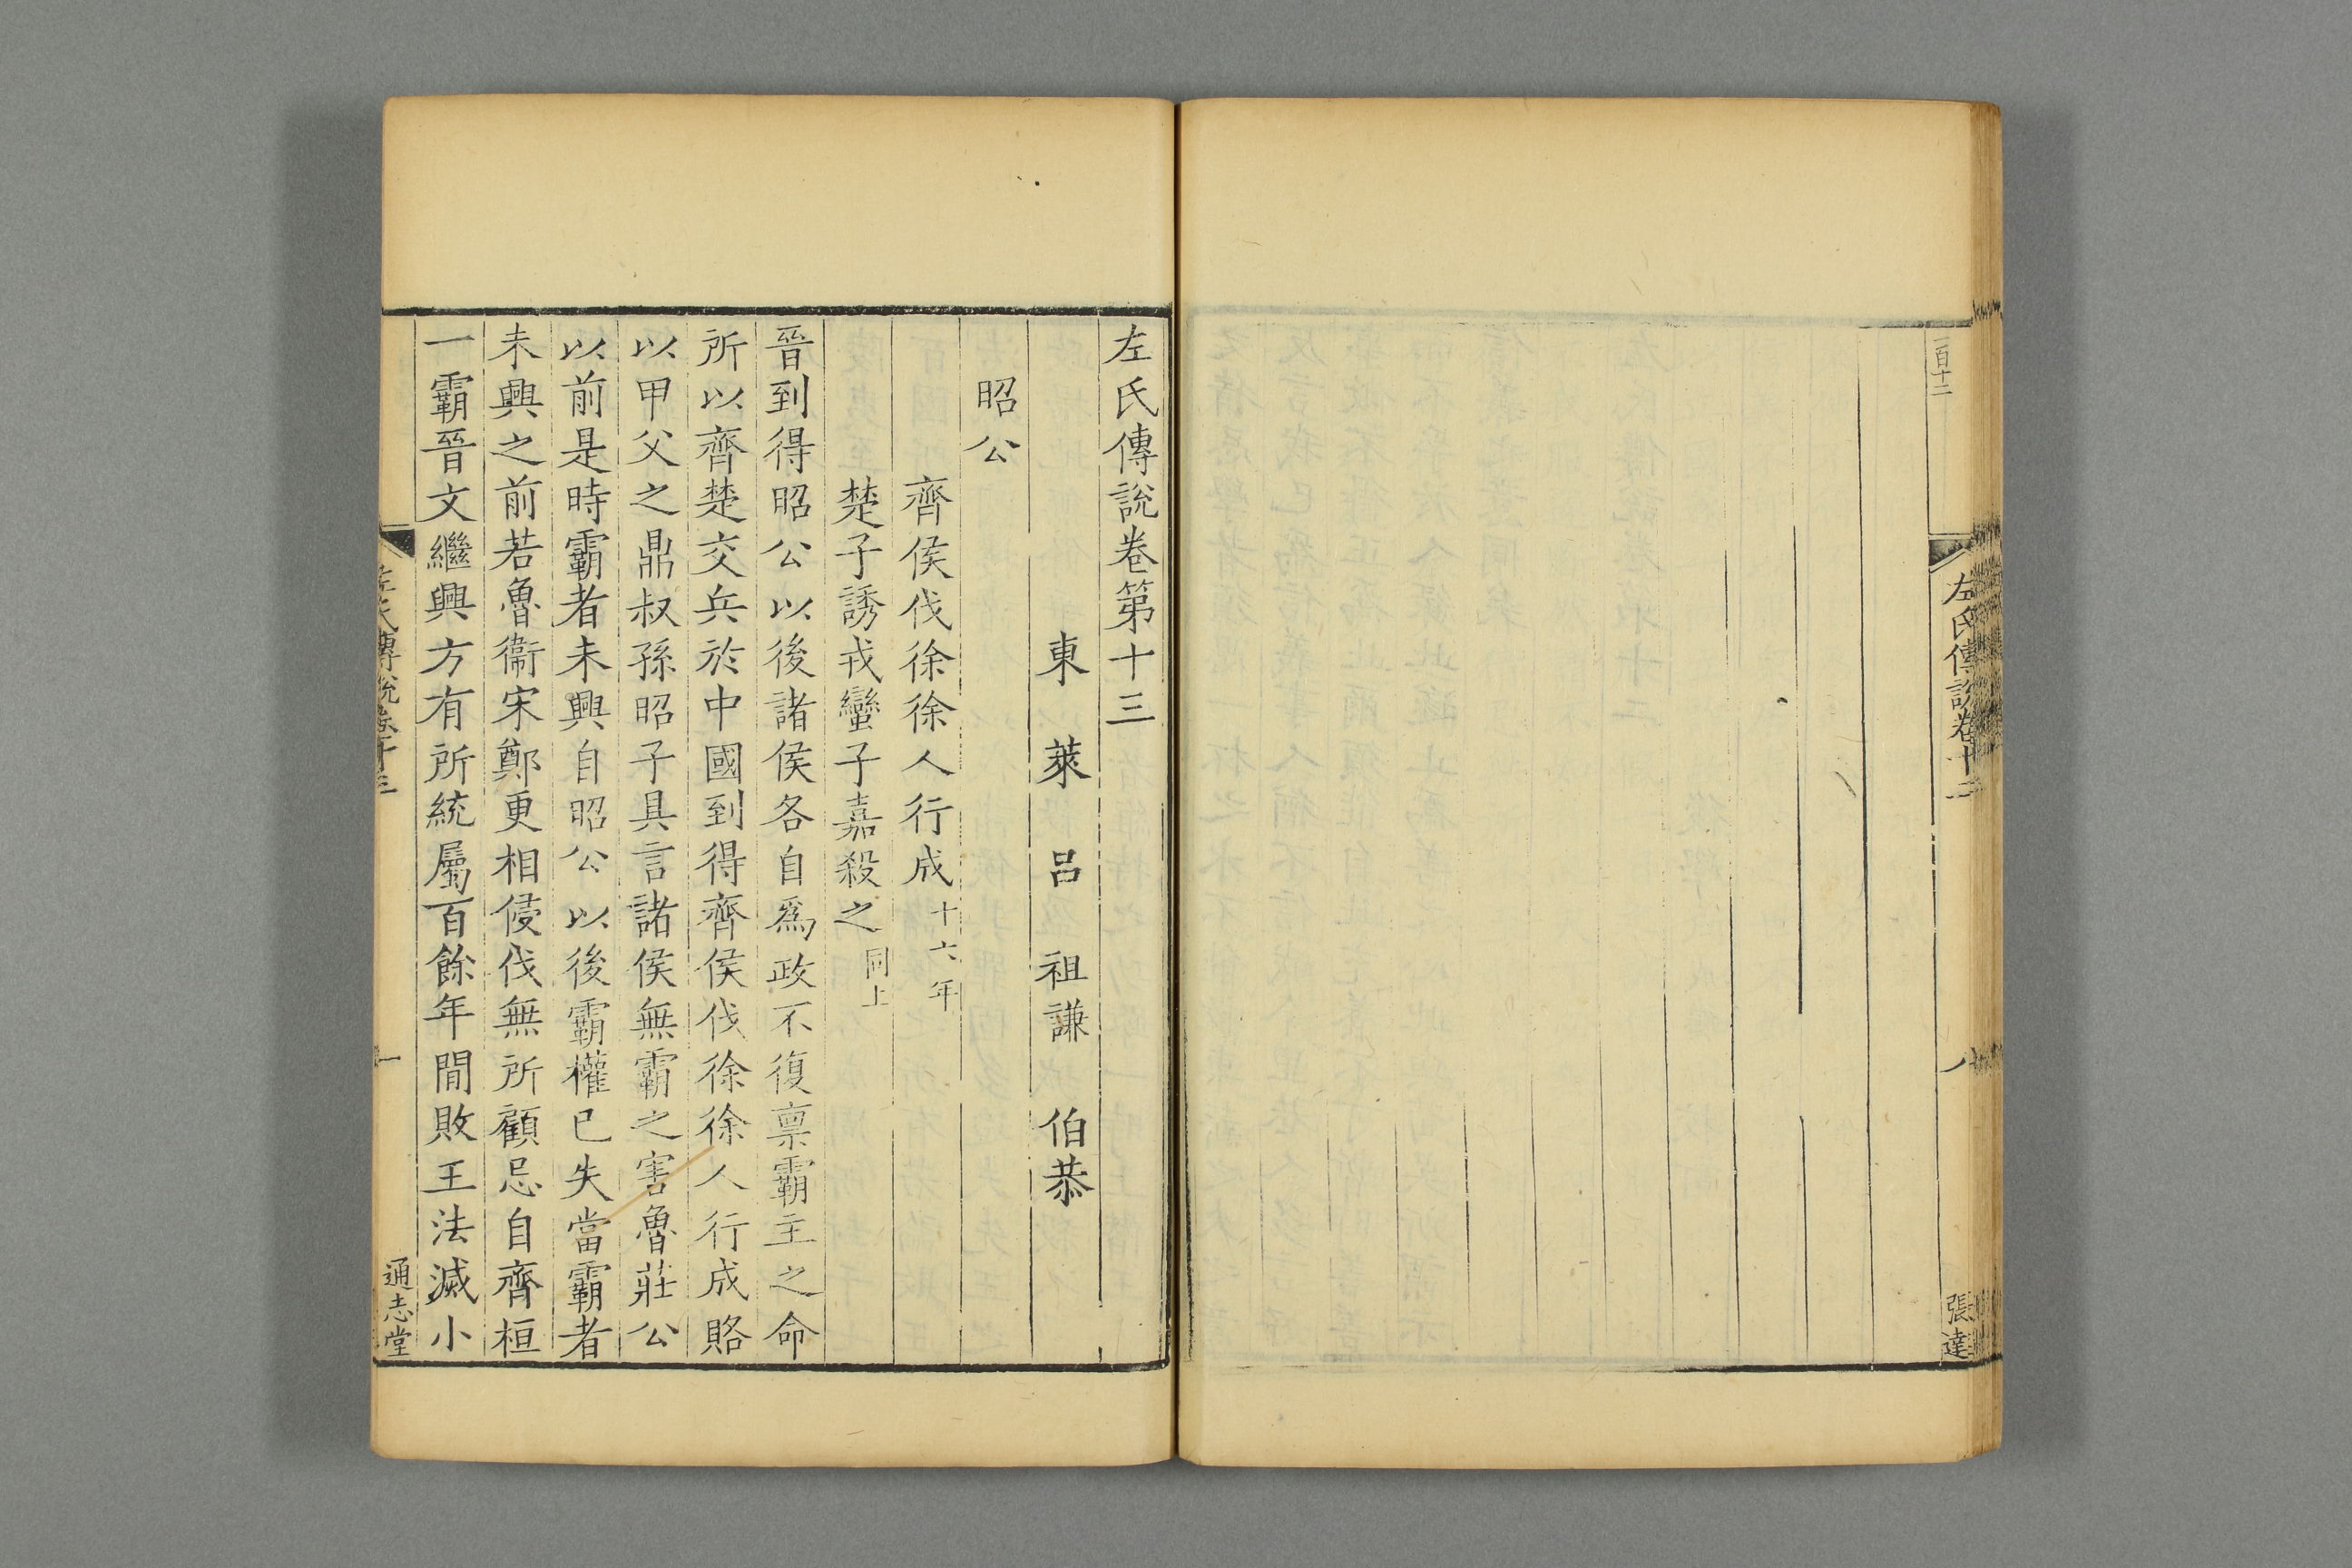 一百十二
左氏傳說卷十二
八
張達
左氏傳說卷第十三
東萊呂祖謙伯恭
昭公
齊侯伐徐徐人行成十六年
楚子誘戎蠻子嘉殺之同上
晉到得昭公以後諸侯各自爲政不復禀霸主之命
所以齊楚交兵於中國到得齊侯伐徐徐人行成賂
以甲父之鼎叔孫昭子具言諸侯無霸之害魯莊公
以前是時霸者未興自昭公以後霸權已失當霸者
未興之前若魯衞宋鄭更相侵伐無所顧忌自齊桓
一霸晉文繼興方有所統屬百餘年間敗王法滅小
左氏傳說卷十三
一
通志堂